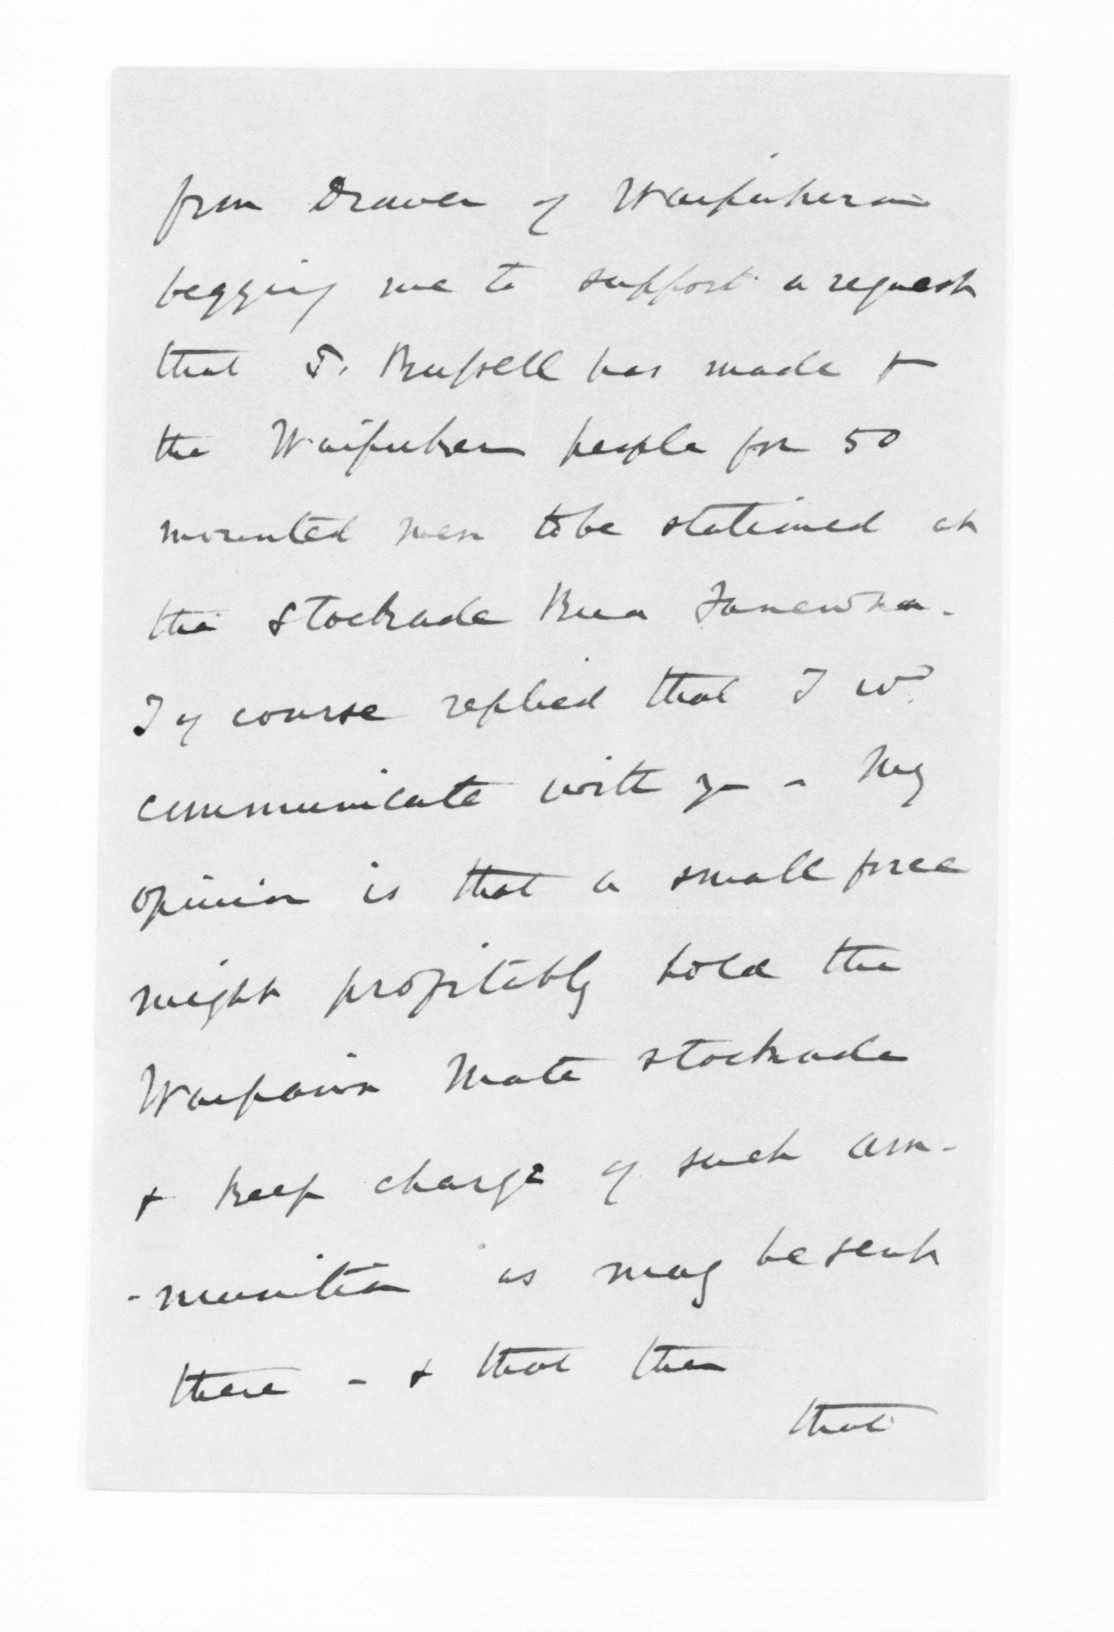 from Drawer of Waipukurau
begging me to support a request
that J. Russell has made to
the Waipukurau people for 50
mounted men to be stationed at
the stockade Rua Taniwha.
I of course replied that I wd.
communicate with you - My
opinion is that a small force
might profitably hold the
Waipawa Mate stockade
& keep charge of such am-
-munition as may be sent
there - & that then
that